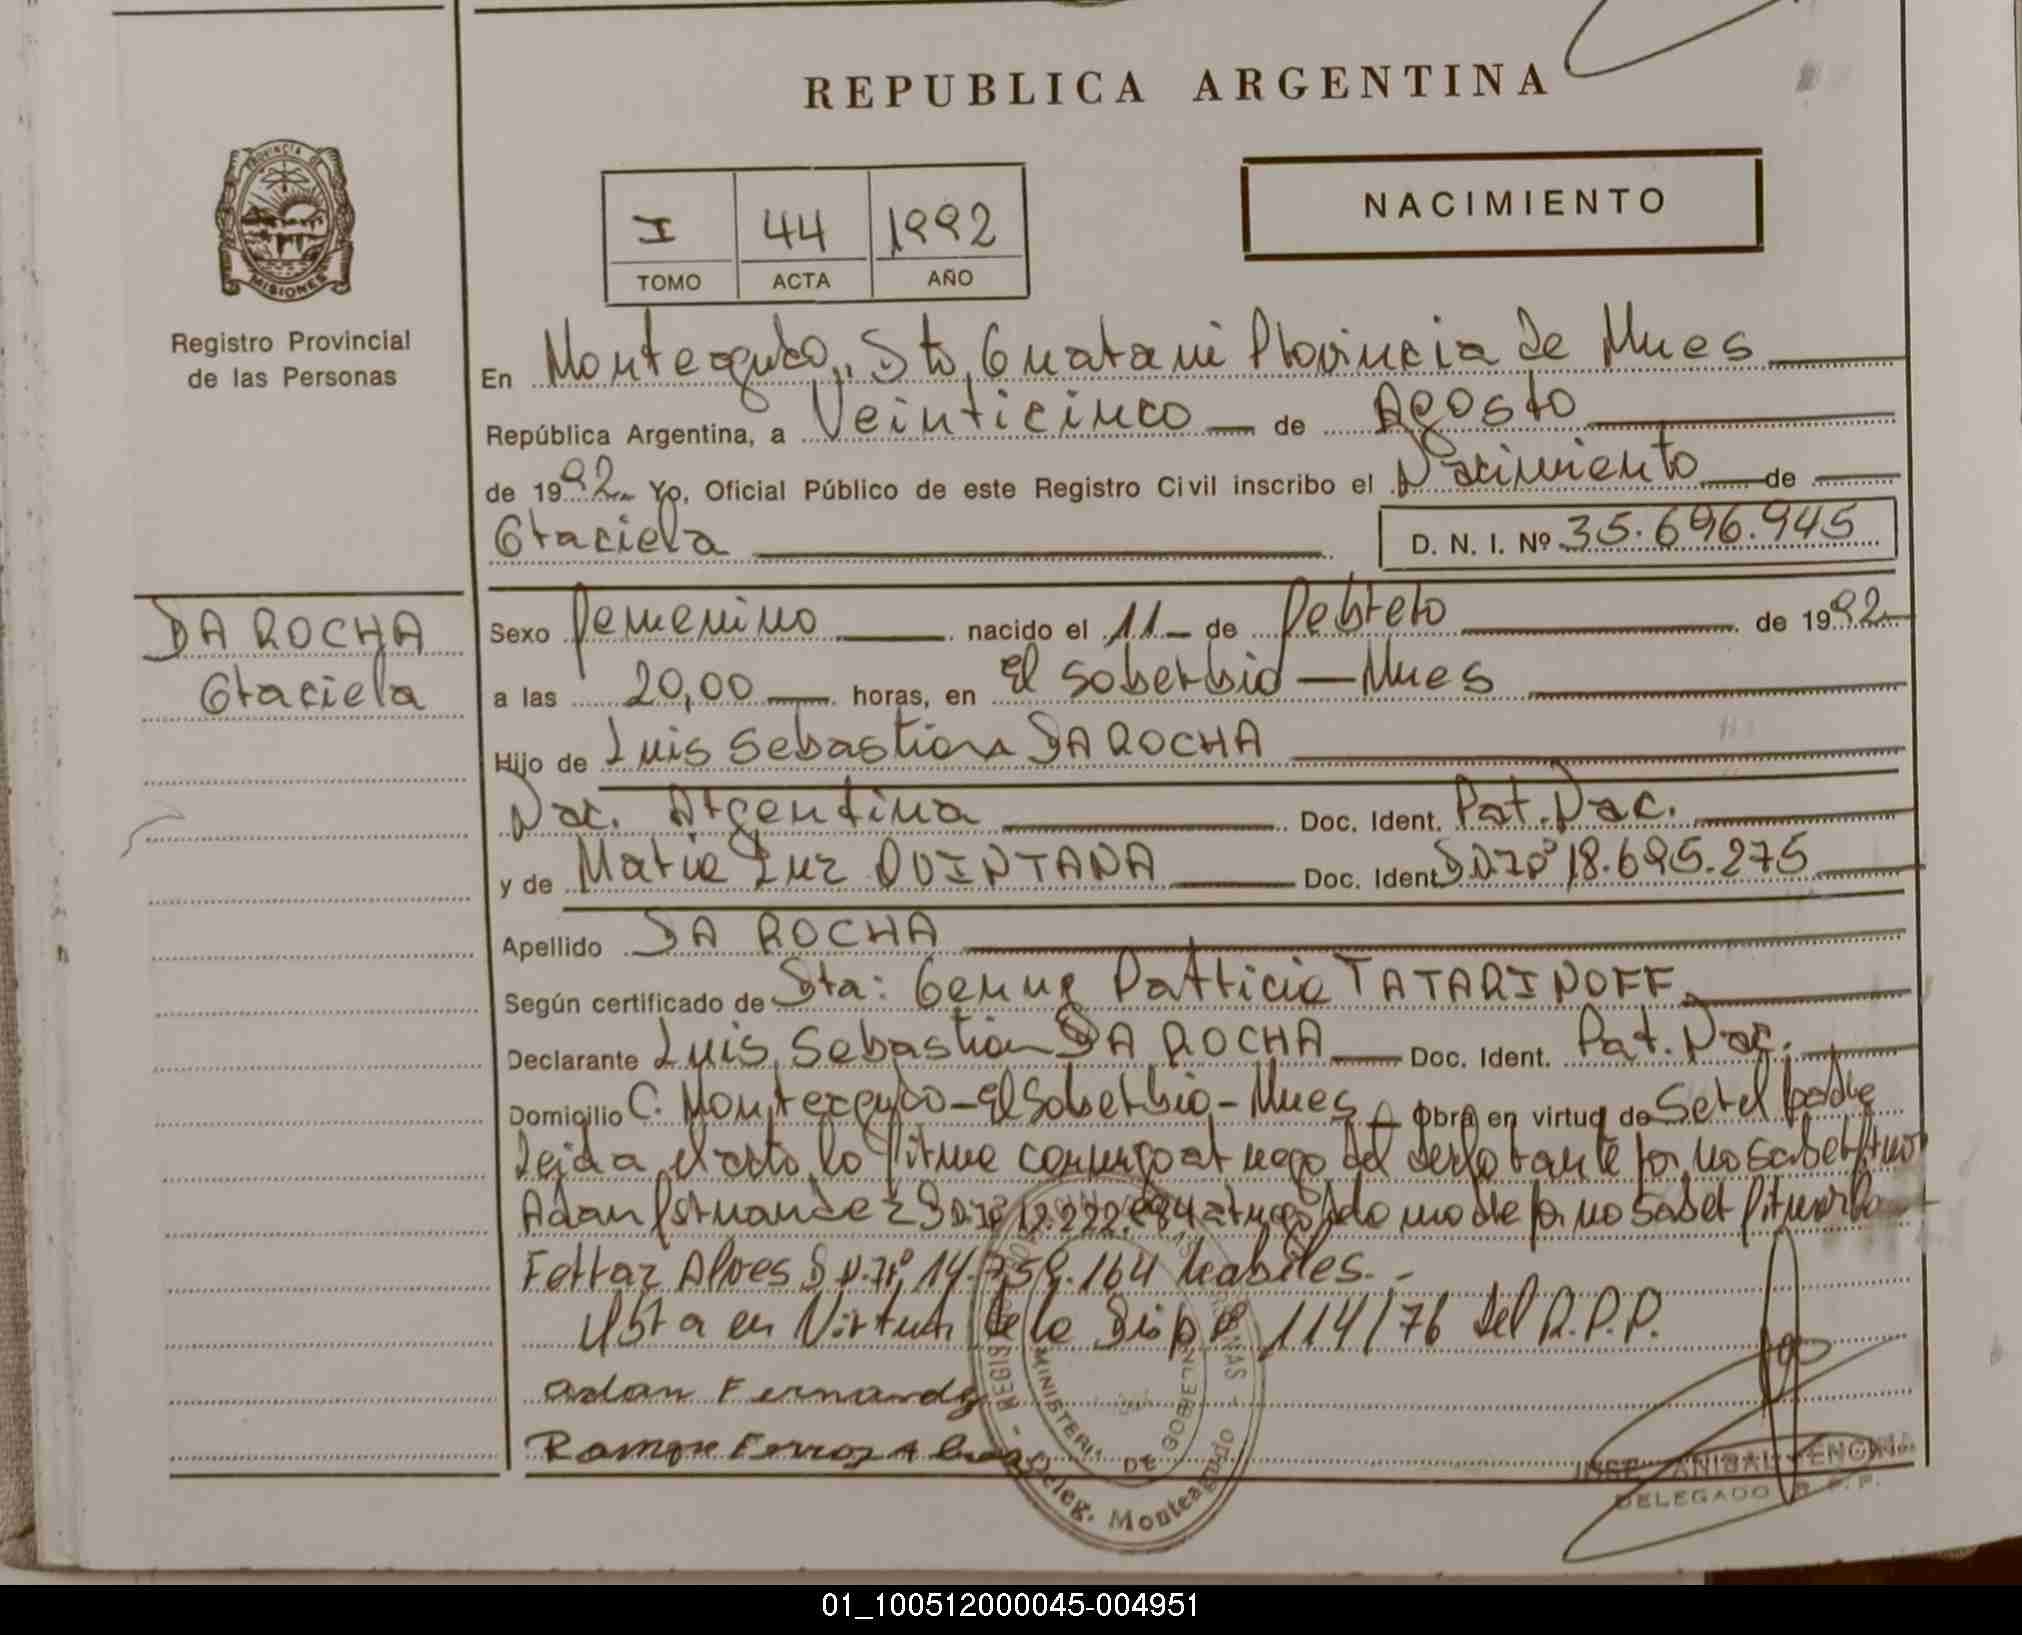 REPUBLICA ARGENTINA
PROVINCIA DE
MISIONES
Registro Provincial
de las Personas
I 44 1992
TOMO ACTA AÑO
NACIMIENTO
En Monteagudo, Dto. Guarani Provincia de Mnes
República Argentina, a Veinticinco de Agosto
de 1992 Yo, Oficial Público de este Registro Civil inscribo el Nacimiento de
Graciela D. N. I. Nº 35.696.945
DA ROCHA
Graciela
Sexo femenino nacido el 11 de febrero de 1992
a las 20,00 horas, en El Soberbio - Mnes
Hijo de Luis Sebastian DA ROCHA
Nac. Argentina Doc. Ident. Pat. Nac.
y de Maria Luz QUINTANA Doc. Ident D.N.Iº 18.695.275
Apellido DA ROCHA
Según certificado de Sta: Genny Patricia TATARINOFF
Declarante Luis Sebastian DA ROCHA Doc. Ident. Pat. Nac.
Domicilio C. Monteagudo - El Soberbio - Mnes Obra en virtud de ser el padre
Leida el acta la firma conmigo a ruego del declarante por no saber firmar
Adan Fernandez D.N.Iº 12.222. a ruego de la madre por no saber firmar lo
Ferraz Alves D.N.Iº 14.759.164 habiles.-
en Virtud de la Disp. 114/76 del R.P.P.
adan Fernandez
Ramon Ferraz Alves
MINISTERIO DE GOBIERNO
Deleg. Monteagudo
JOSE ANIBAL ENCINA
DELEGADO R.P.P.
01_100512000045-004951